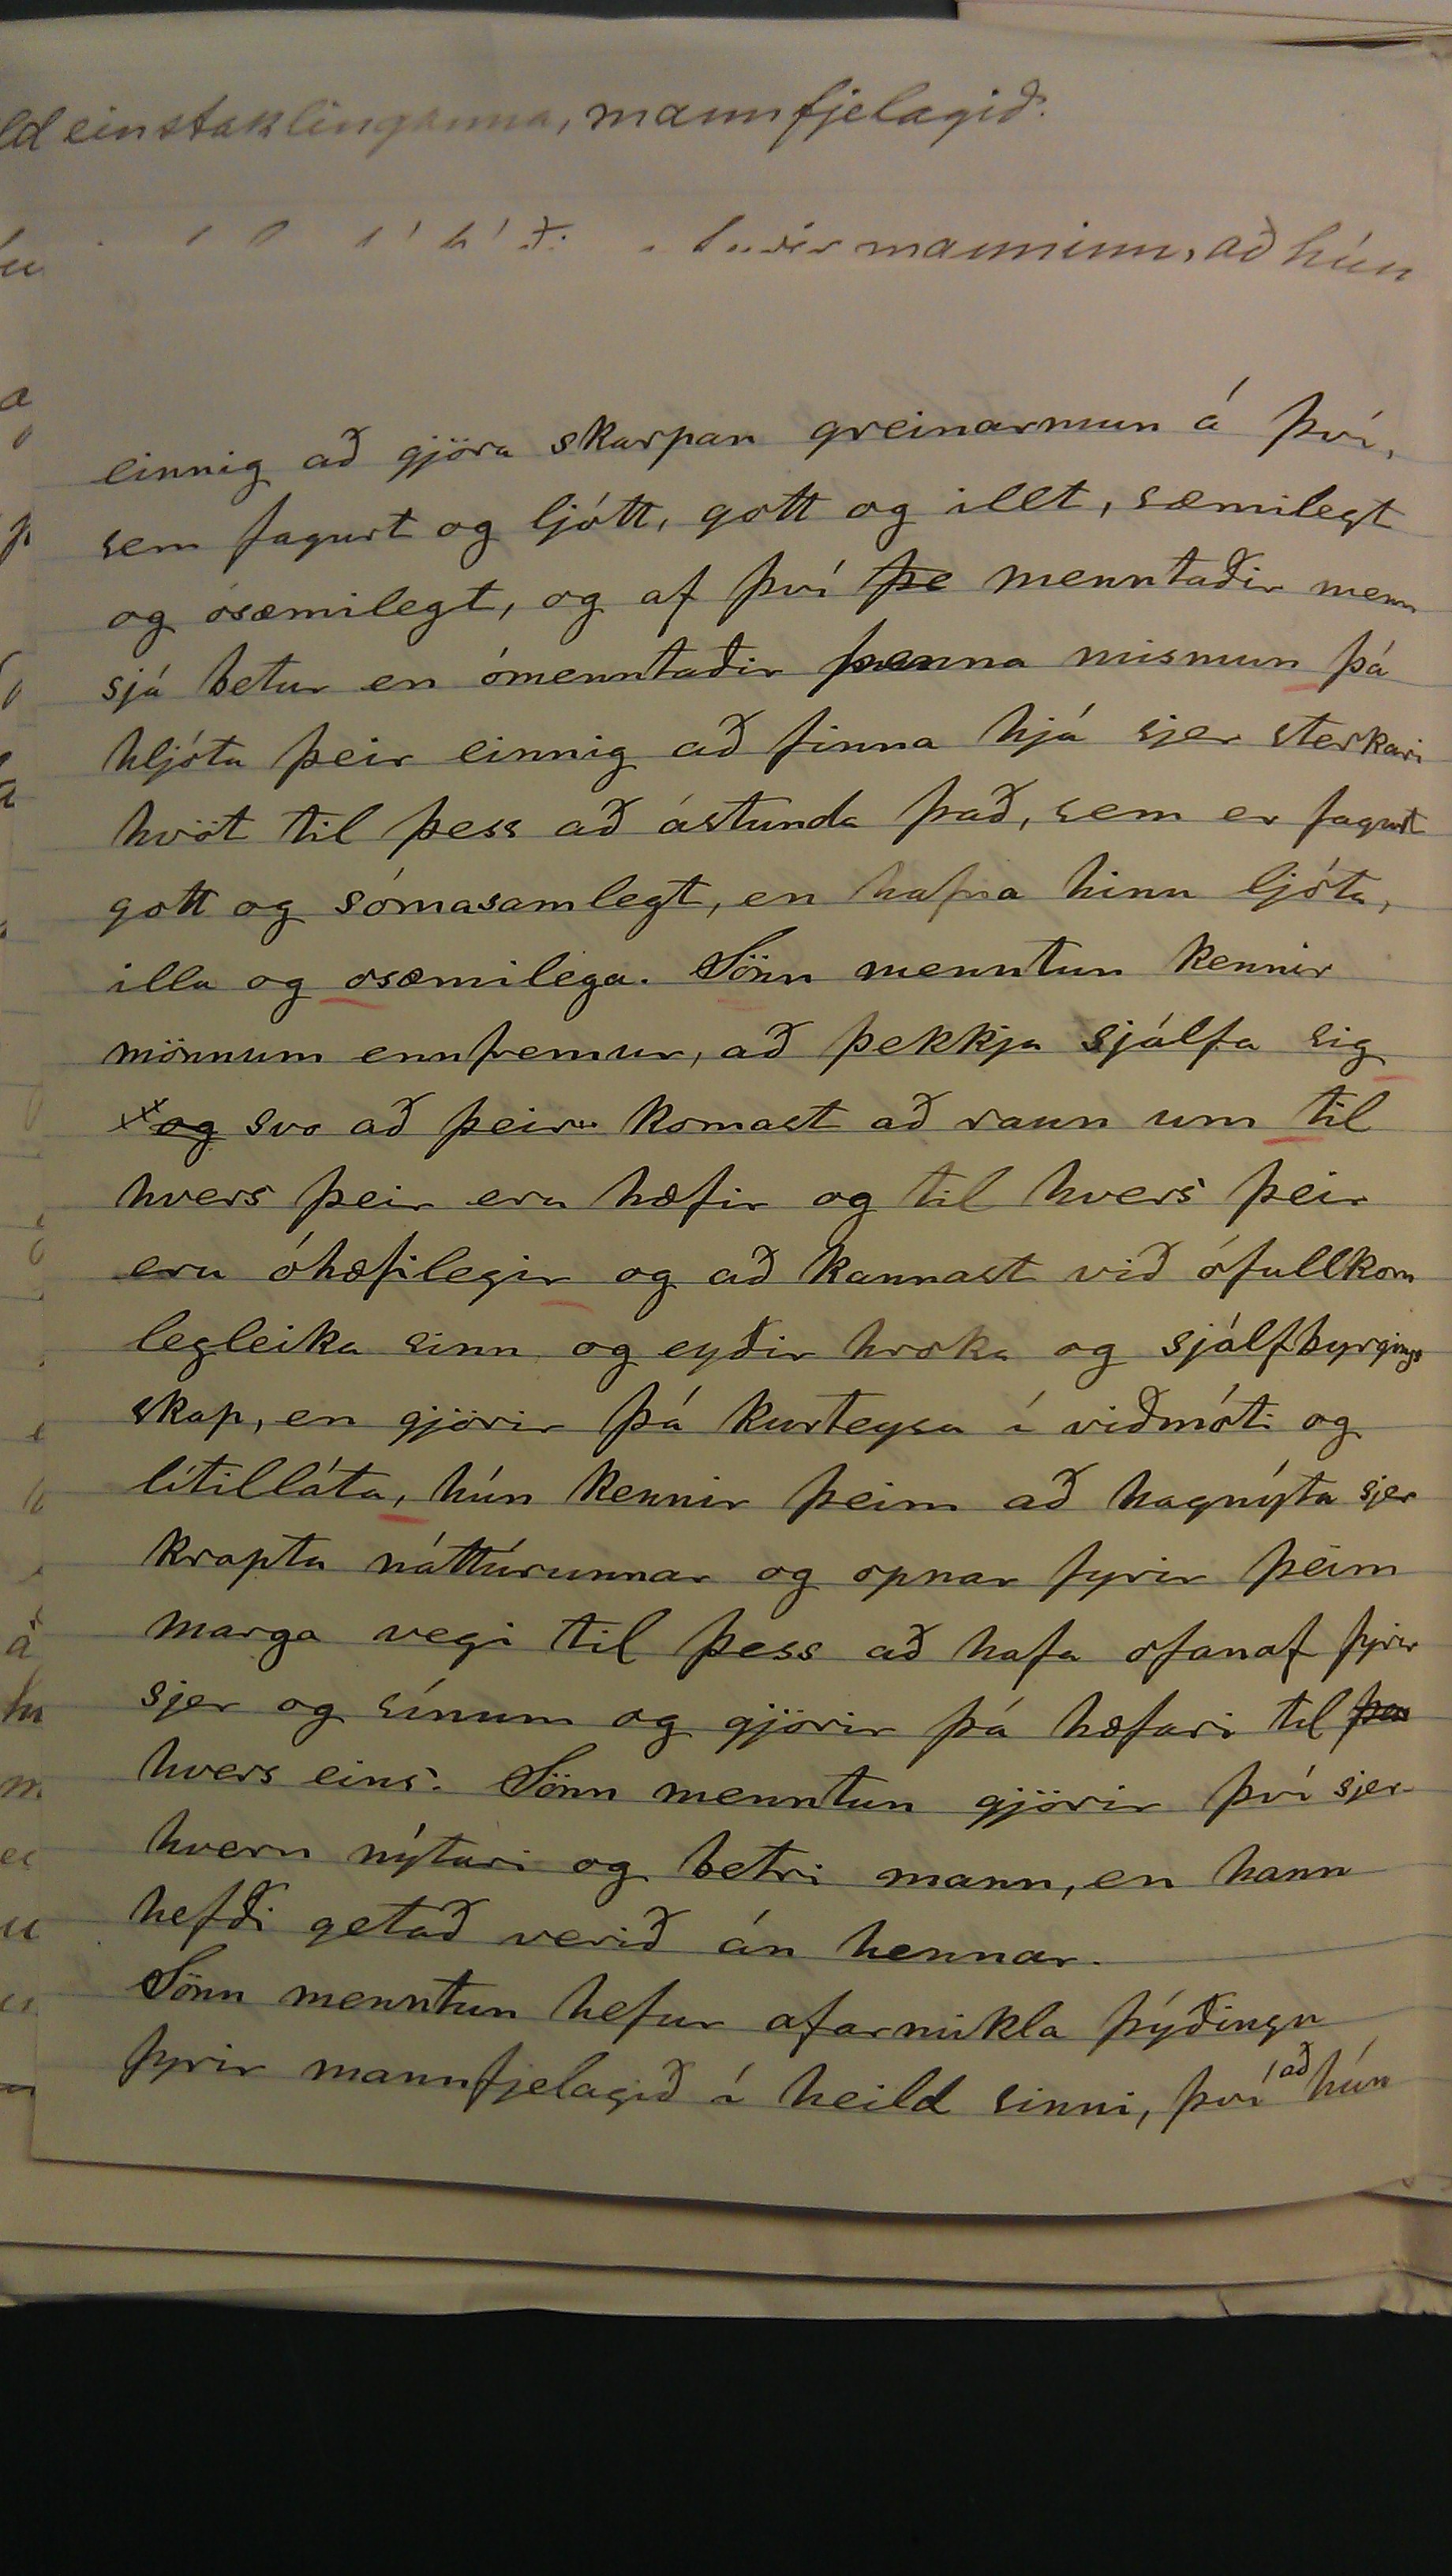 einstaklinganna, mannfjelagið.
manninn, að hún
einnig að gjöra skarpan greinarmun á því,
sem fagurt og ljótt, gott og illt, sæmilegt
og ósæmilegt, og af því þe menntaðir menn
sjá betur en ómenntaðir þenna mismun þá
hljóta þeir einnig að finna hjá sjer sterkari
hvöt til þess að ástunda það, sem er fagurt
gott og sómasamlegt, en hafna hinu ljóta,
illa og osæmilega. Sönn menntun kennir
mönnum ennfremur, að þekkja sjálfa sig
og svo að þeir komast að raun um til
hvers þeir eru hæfir og til hvers þeir
eru óhæfilegir og að kannast við ófullkom
legleika sinn og eyðir hroka og sjálfbyrgings
skap, en gjörir þá kurteysa í viðmóti og
lítilláta, hún kennir þeim að hagnýta sjer
krapta náttúrunnar og opnar fyrir þeim
marga vegi til þess að hafa ofanaf fyrir
sjer og sínum og gjörir þá hæfari til þess
hvers eins. Sönn menntun gjörir því sjer
hvern nýtari og betri mann, en hann
hefði getað verið án hennar.
Sönn menntun hefur afarmikla þýðingu
fyrir mannfjelagið í heild sinni, því að hún